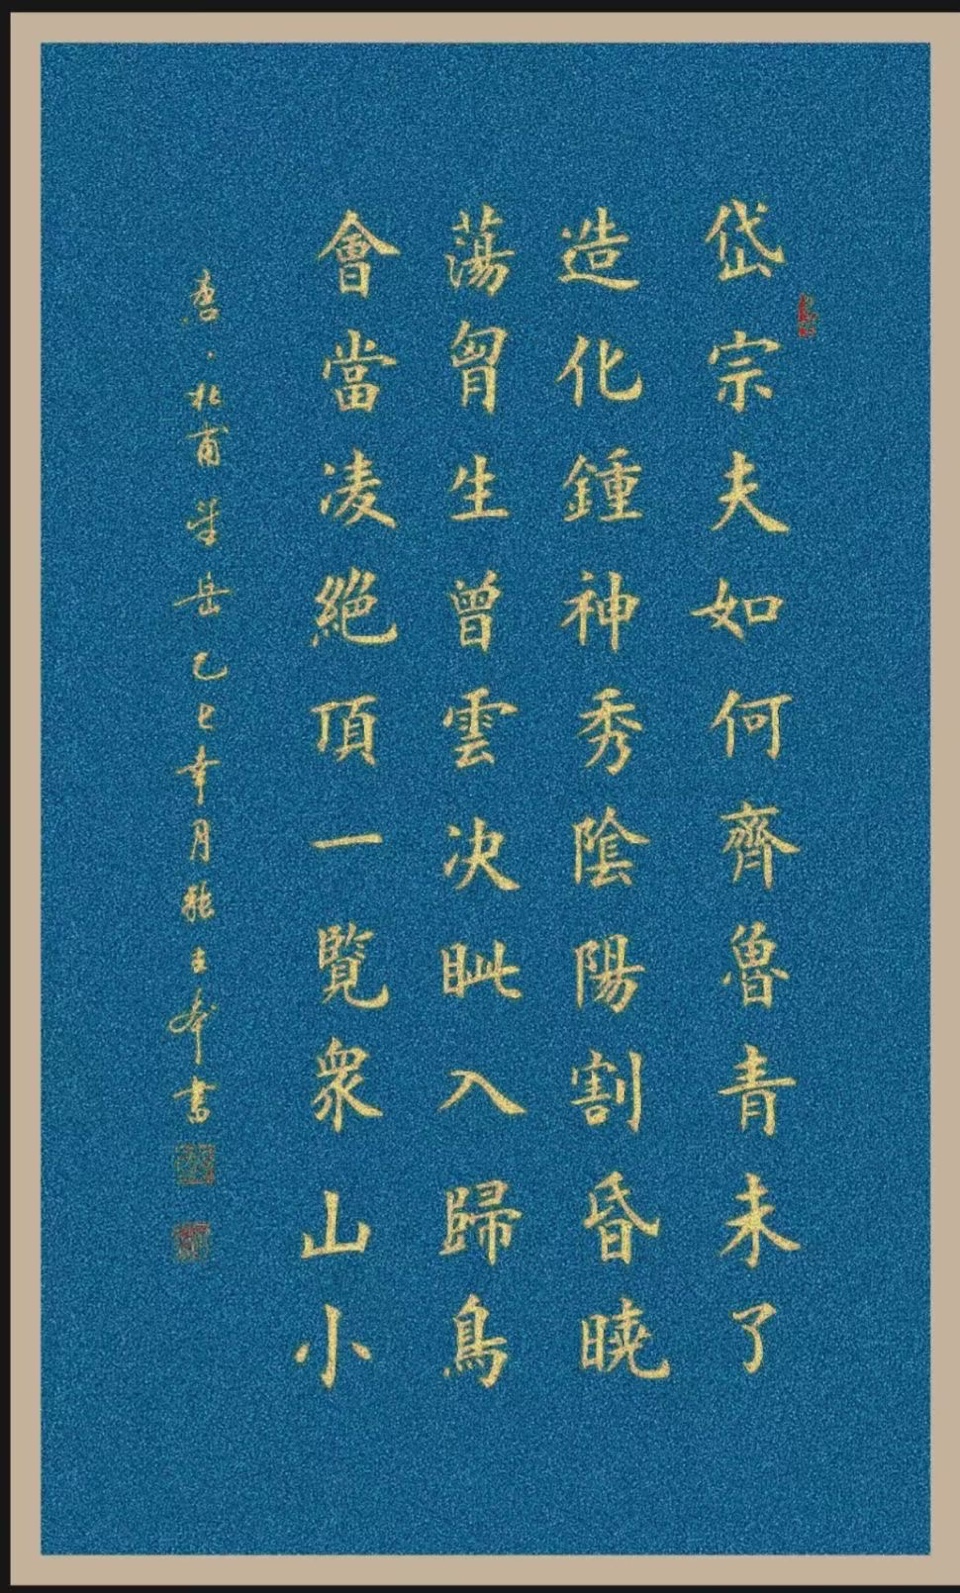 岱宗夫如何齊魯青未了
造化鍾神秀陰陽割昏曉
蕩胷生曾雲決眦入歸鳥
會當凌絕頂一覽衆山小
唐·杜甫望岳乙七年月張玉本書